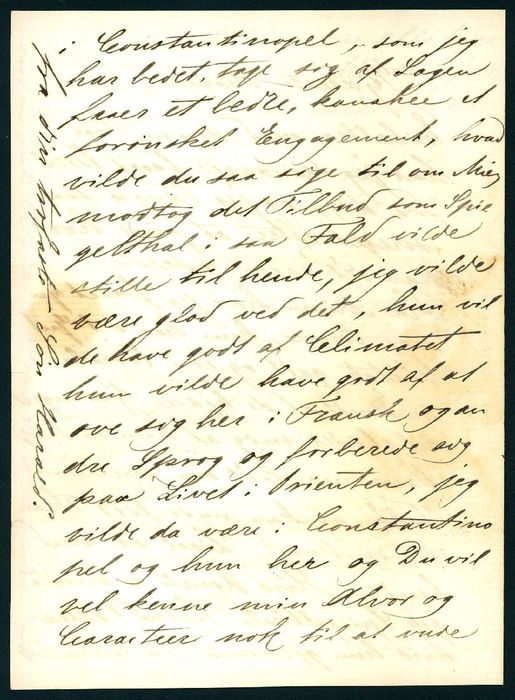 i Constantinopel, som jeg
har bedet, tage sig af Sagen
faaer et bedre, kanskee et
forønsket Engagement, hvad
vilde du saa sige til om Mie
modtog det Tilbud som Spie
gelthal i saa Fald vilde
stille til hende, jeg vilde
være glad ved det, hun vil
de have godt af Climatet
hun vilde have godt af at
øve sig her i Fransk og an
dre Sprog og forberede sig
paa Livet i Orienten, jeg
vilde da være i Constantino
pel og hun her og Du vil
vel kenne min Alvor og
Caracteer nok til at vide
fra din Søn Harald.